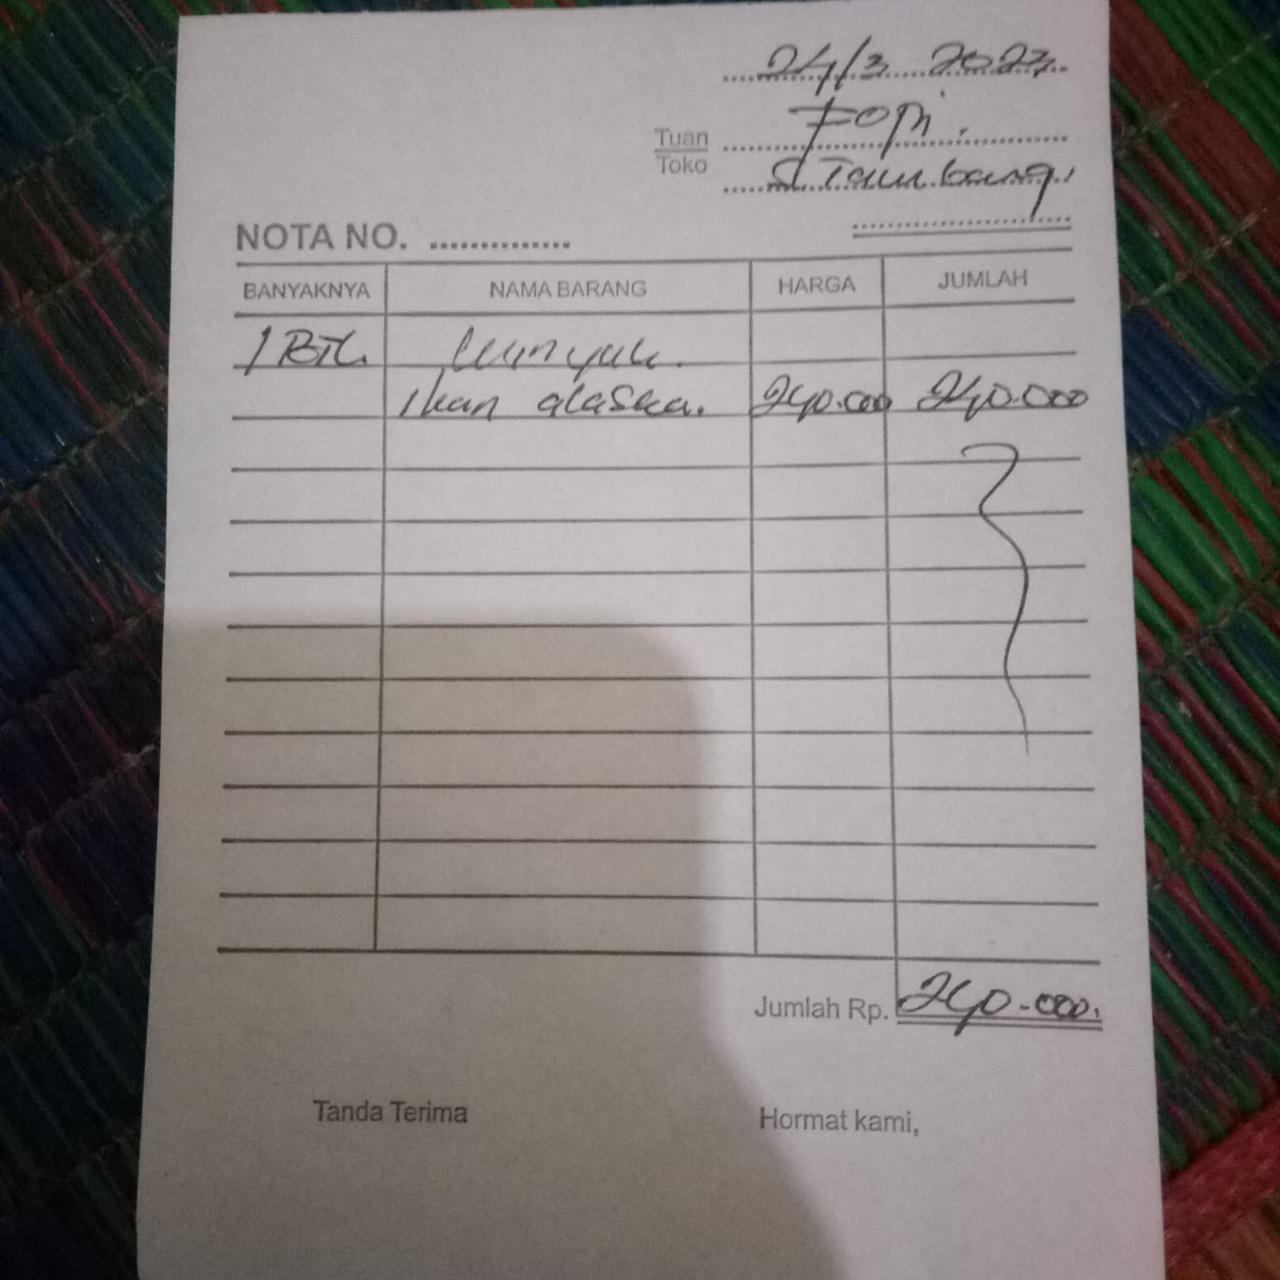 24/3 2023
Tuan Fopi.
Toko S Tambang,
NOTA NO. ..............
BANYAKNYA NAMA BARANG HARGA JUMLAH
1 BTL. Minyak.
Ikan alaska. 240.000 240.000
Jumlah Rp. 240.000.
Tanda Terima Hormat kami,